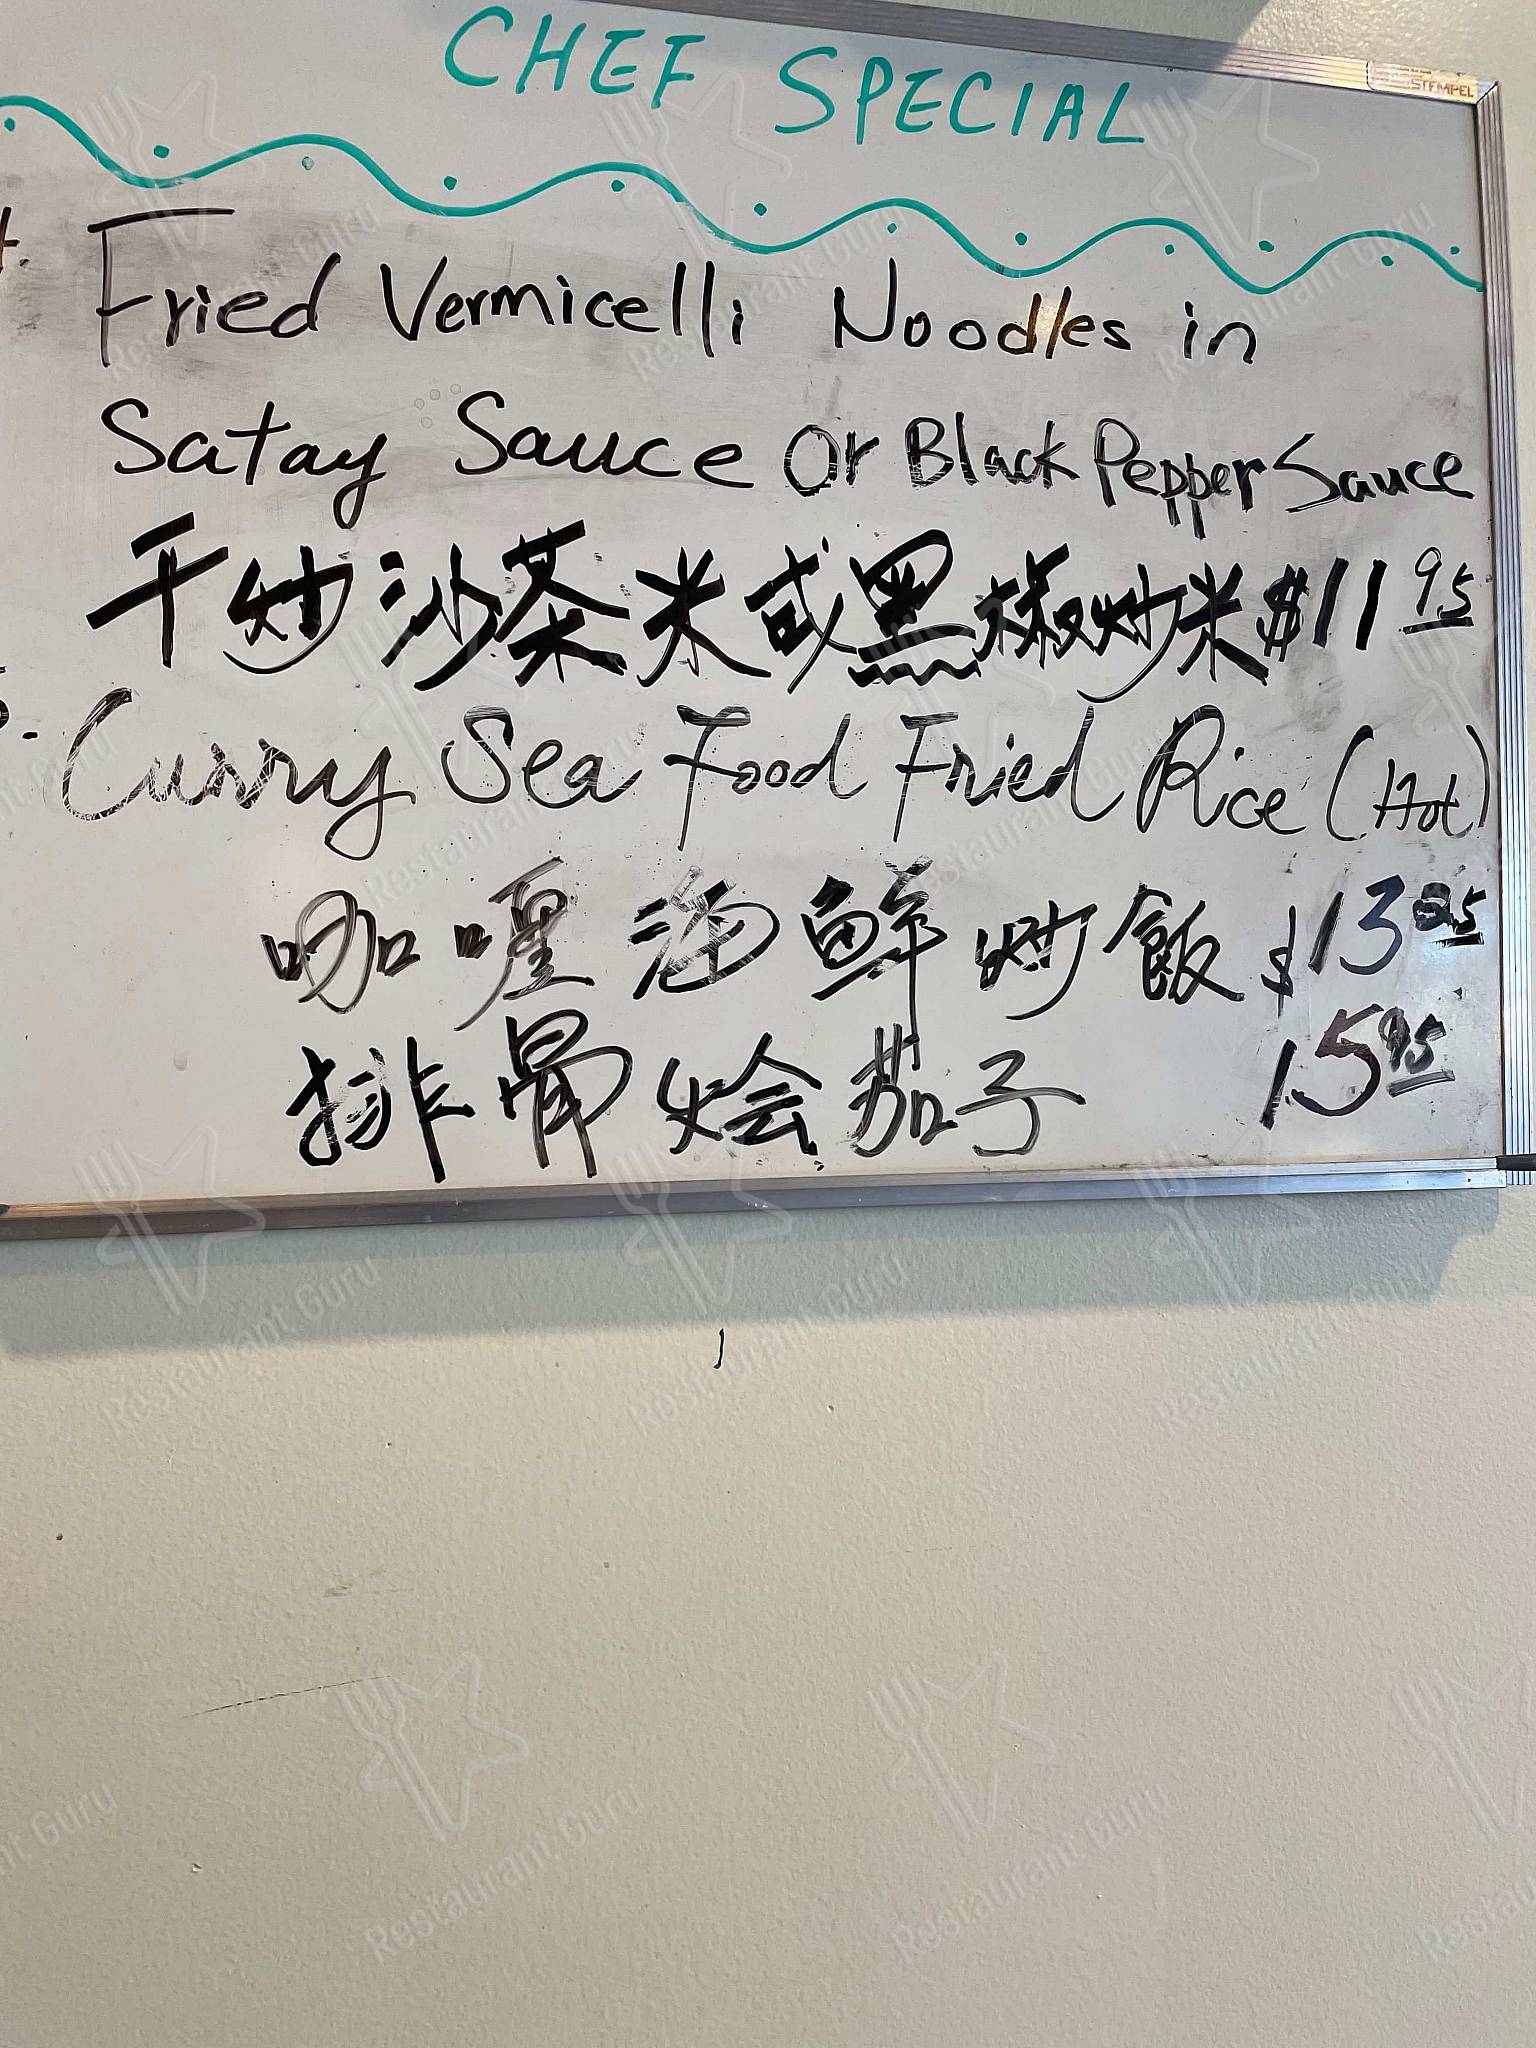 CHEF SPECIAL
STEMPEL
Fried Vermicelli Noodles in
Satay Sauce Or Black Pepper Sauce
干炒沙茶米或黑椒炒米 $11.95
Curry Sea Food Fried Rice (Hot)
咖喱海鲜炒飯 $13
排骨烩茄子 15.95
Restaurant Guru